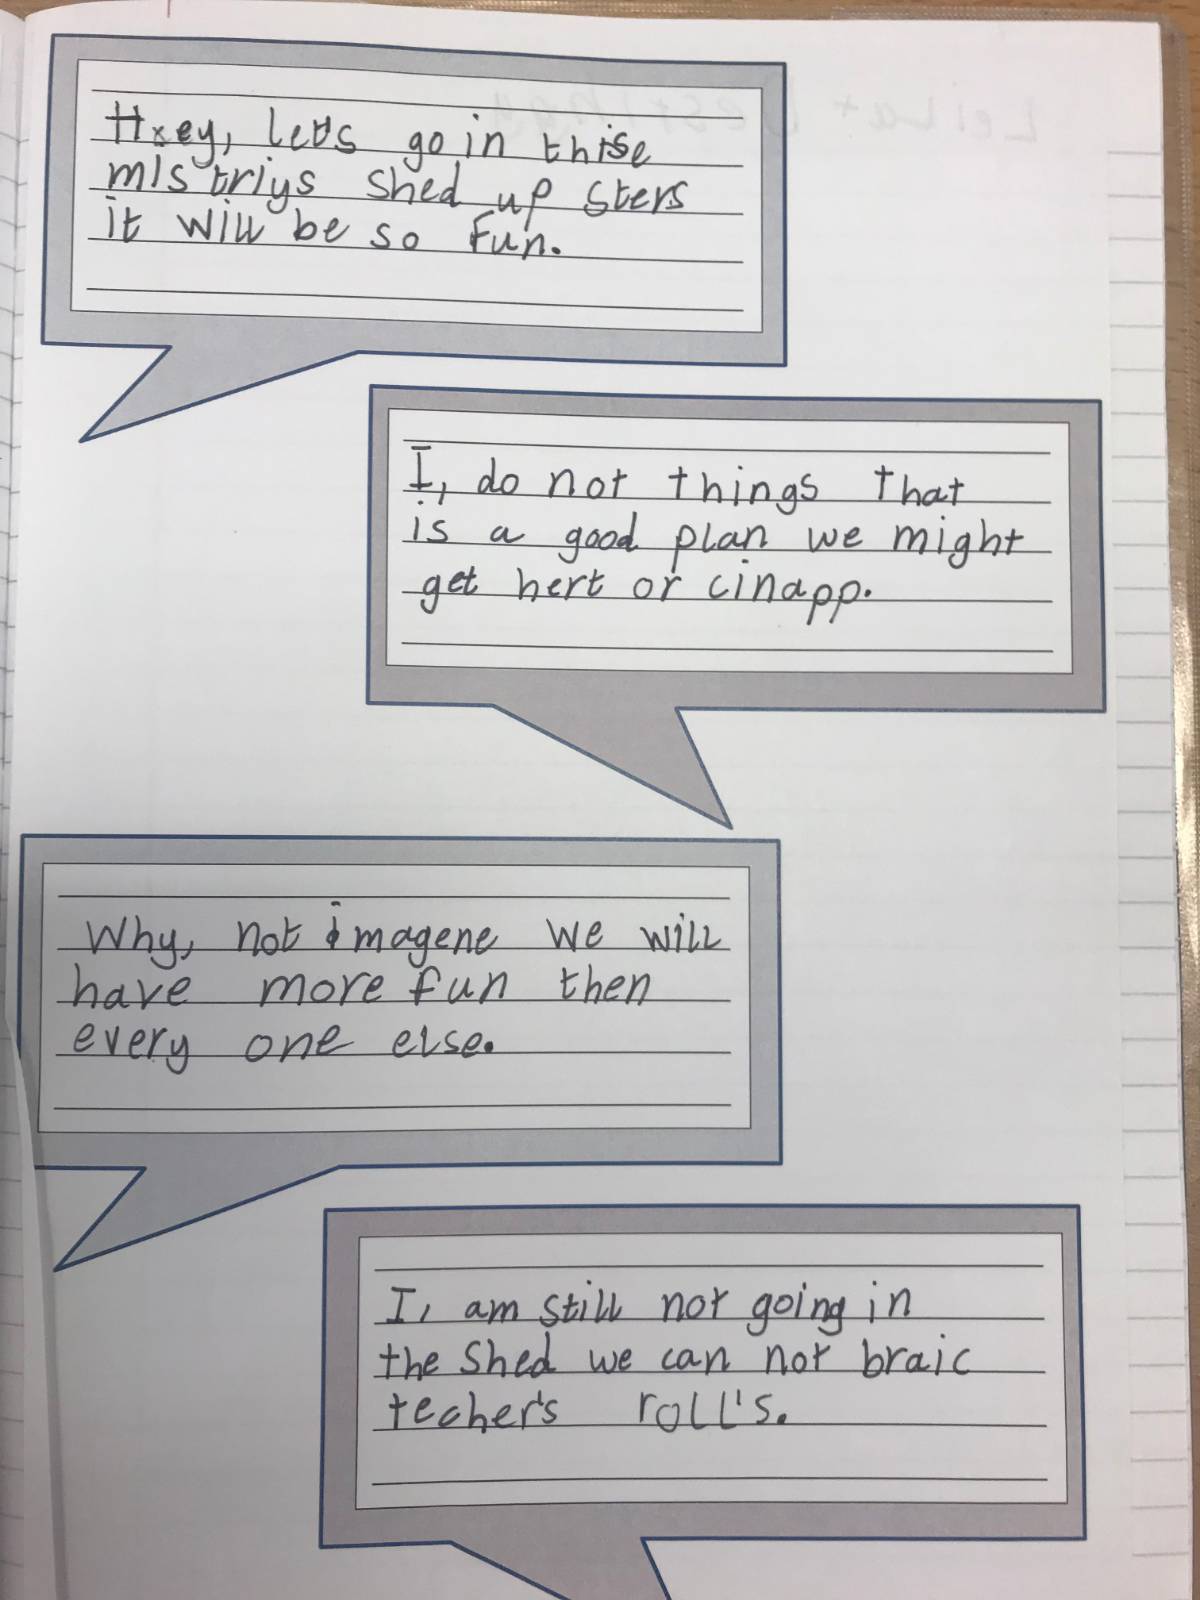 Hey, let's go in thise
mistriys shed up sters
it will be so fun.
I, do not things that
is a good plan we might
get hert or cinapp.
Why, not imagene we will
have more fun then
every one else.
I, am still not going in
the shed we can not braic
techer's roll's.